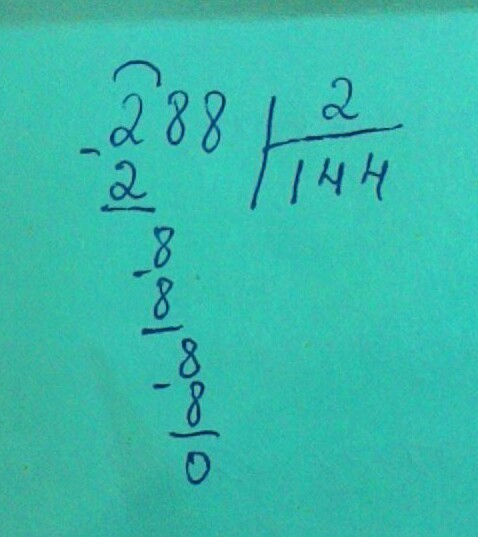 288 2
-2 144
8
-8
8
-8
0